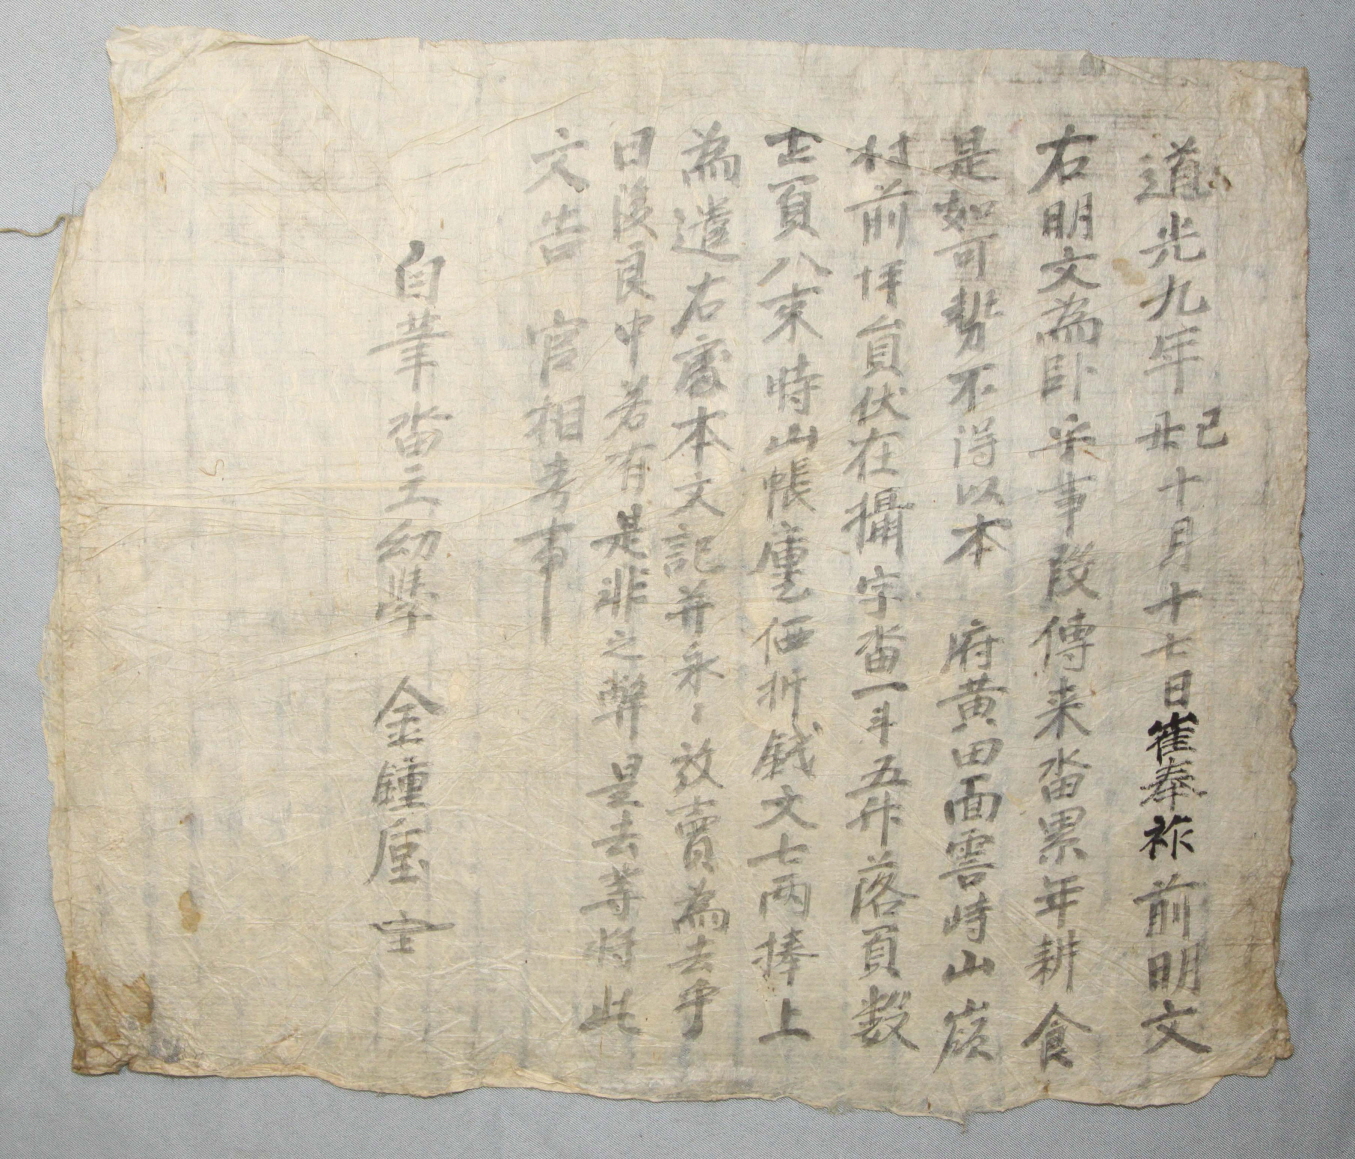 道光九年己丑十月十七日崔奉祚前明文
右明文為卧乎事段傳来畓累年耕食
是如可勢不得以本 府黄田面雲峙山嶺
村前坪員伏在攝字畓一斗五升落頁数
七頁八束時山帳庫乙価折戋文七両捧上
為遣右畓本文記并永々放賣為去乎
日後良中若有是非之弊是去等将此
文告 官相考事
自筆畓主幼學 金鍾